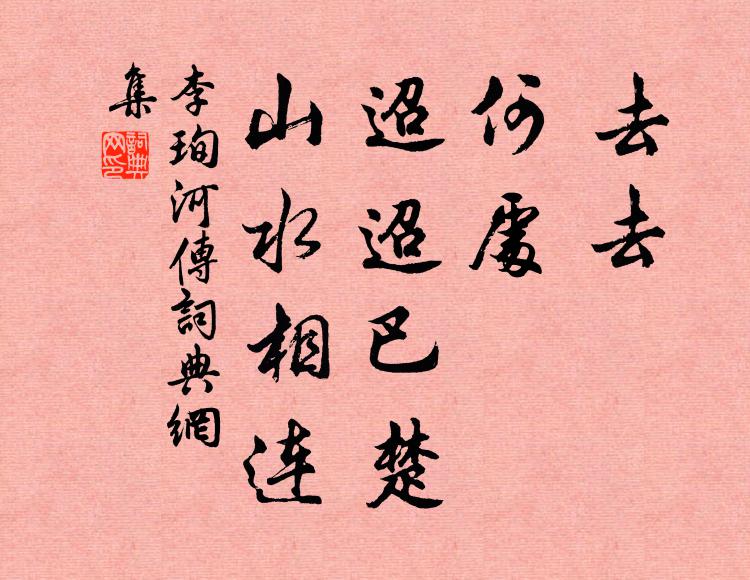 去去
何處
迢迢巴楚
山水相連
李珣河傳詞典網
集
詞典網印